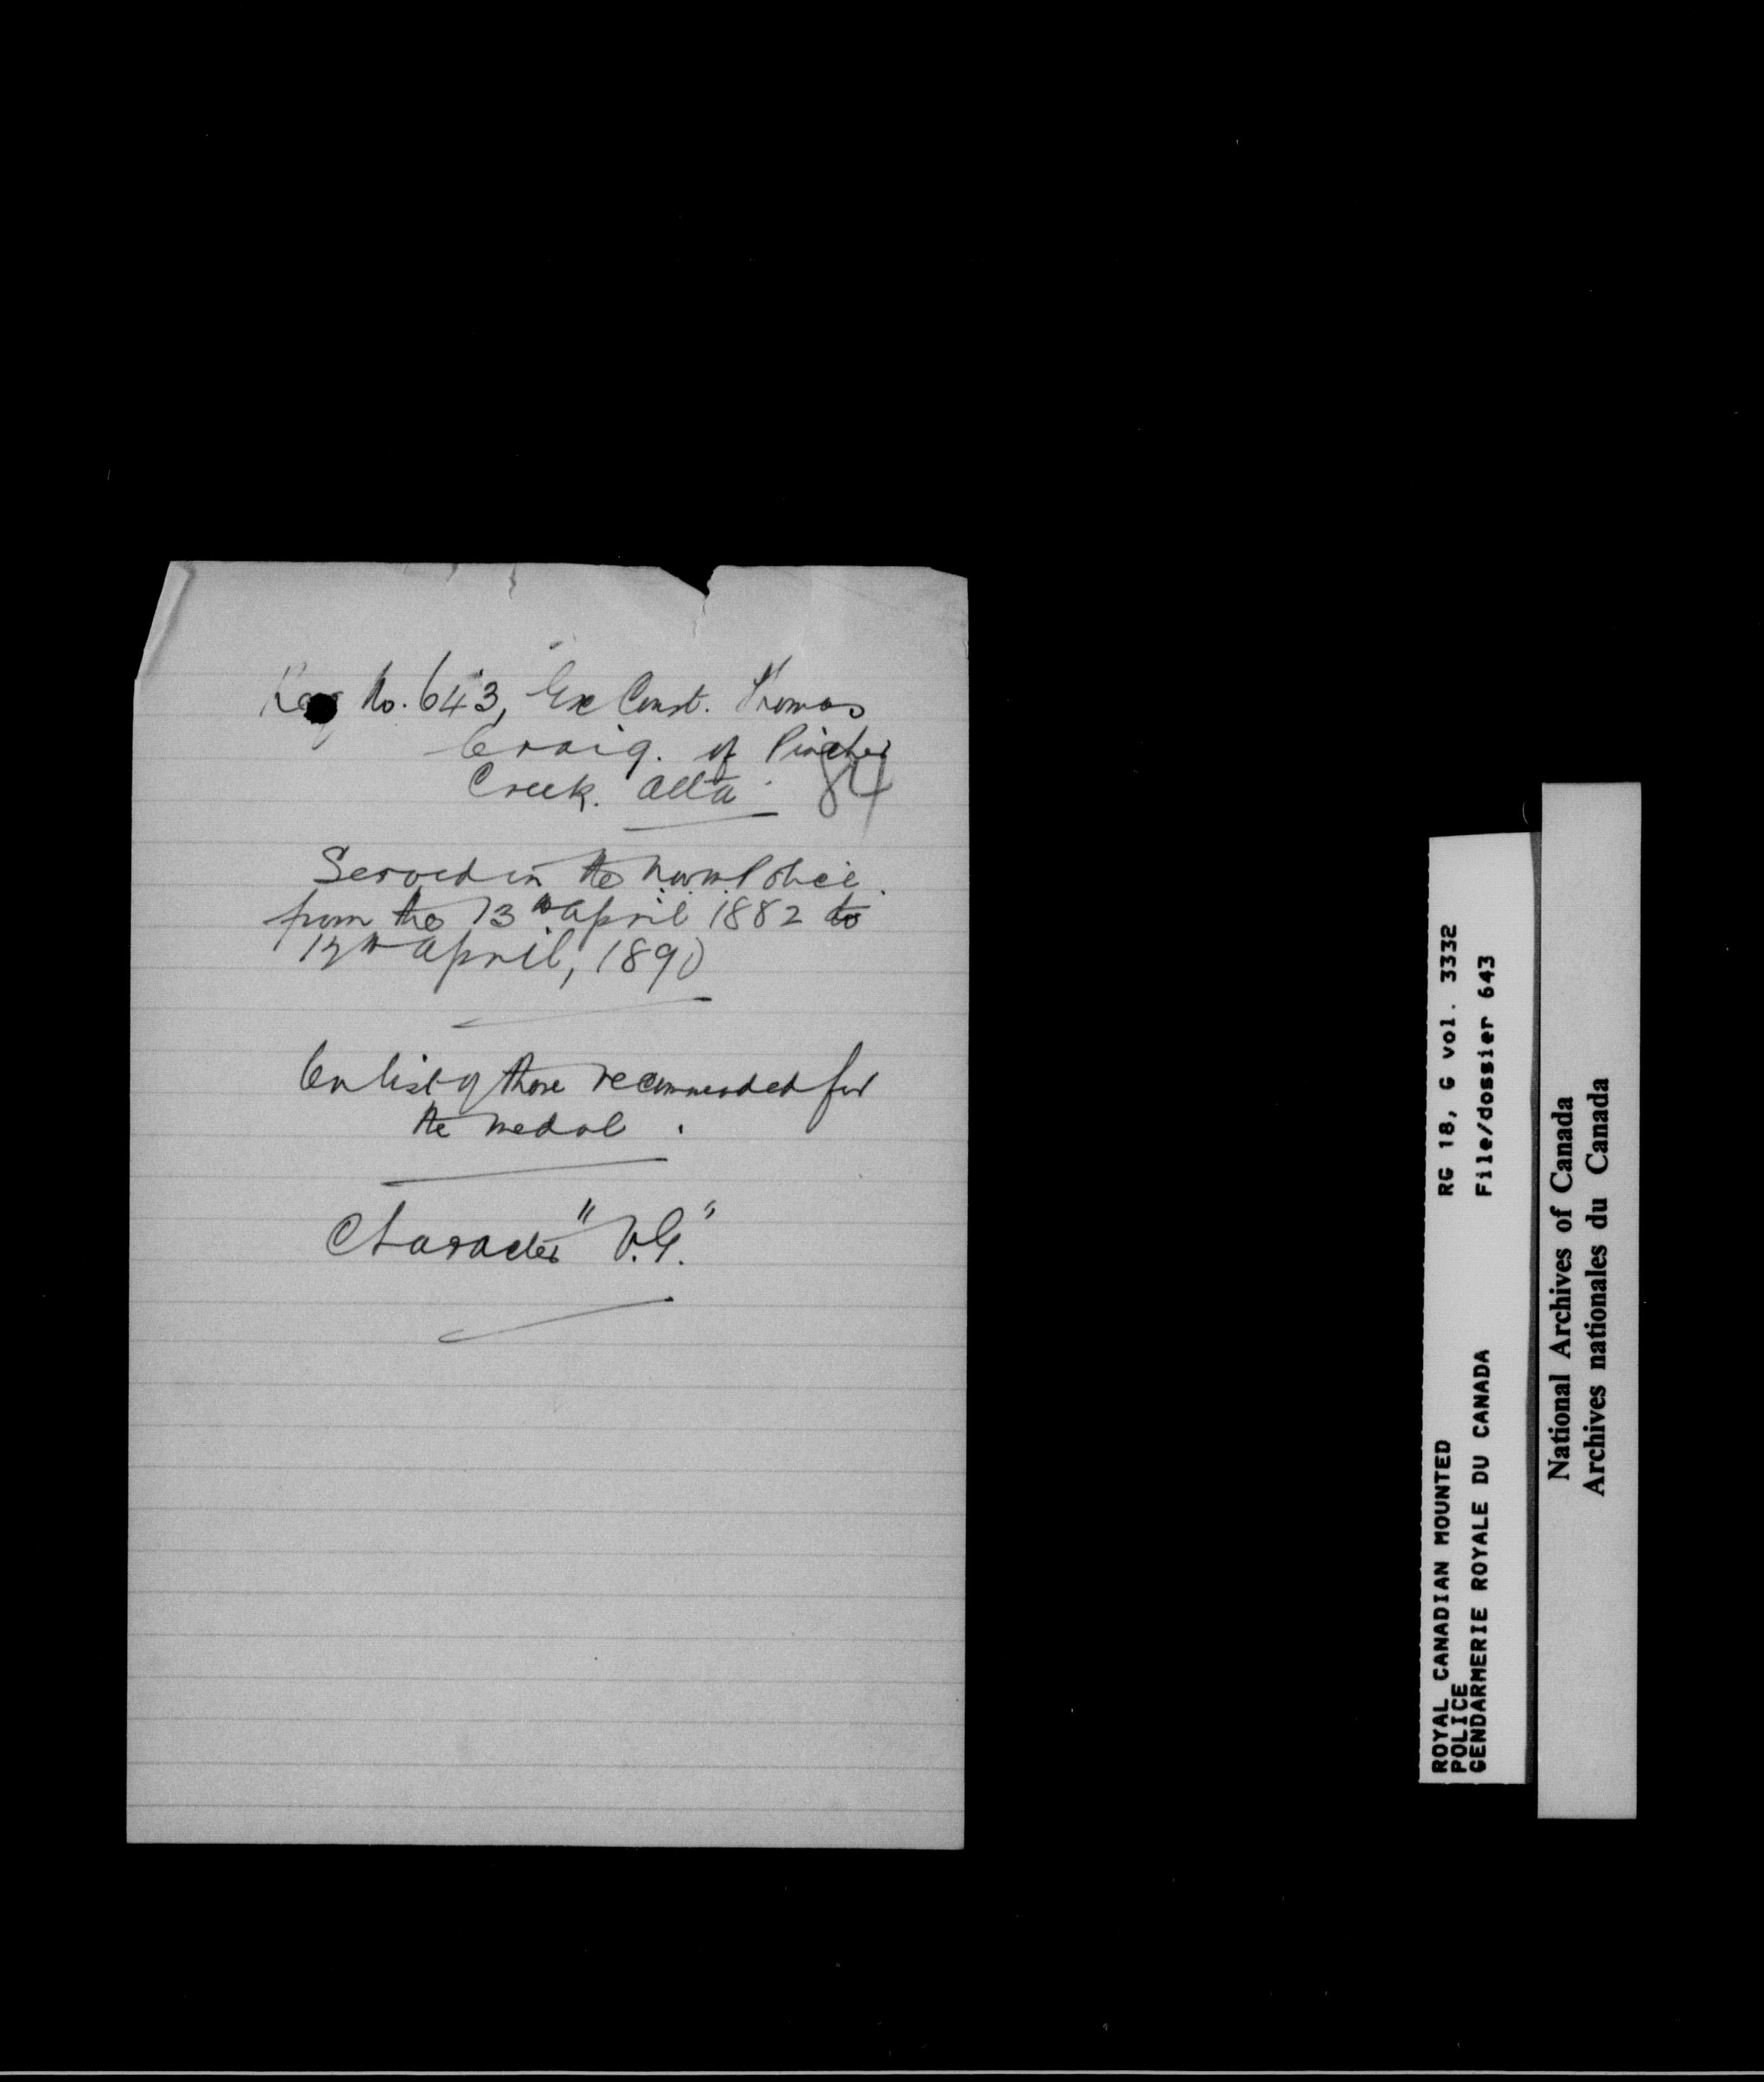 Reg No. 643, Ex Const. Thomas
Craig. of Pincher
Creek. Alta.
84
Served in the N.W.M. Police.
from the 13th April 1882 to
12th April, 1890
On list of those recommended for
the medal.
Character "V.G."
ROYAL CANADIAN MOUNTED
POLICE
GENDARMERIE ROYALE DU CANADA
RG 18, G vol. 3332
File/dossier 643
National Archives of Canada
Archives nationales du Canada